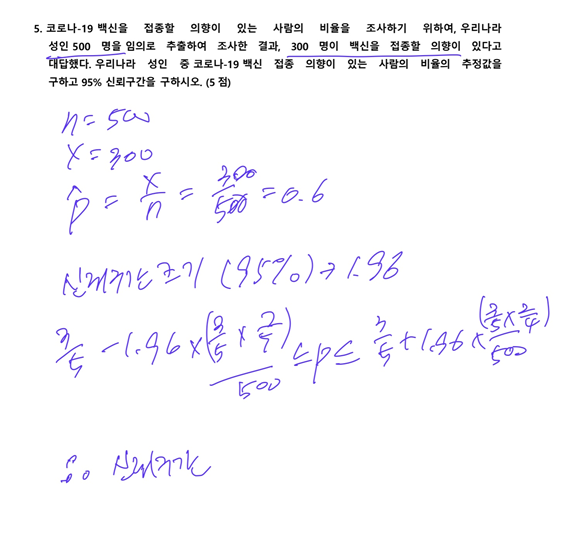 5. 코로나-19 백신을 접종할 의향이 있는 사람의 비율을 조사하기 위하여, 우리나라
성인 500 명을 임의로 추출하여 조사한 결과, 300 명이 백신을 접종할 의향이 있다고
대답했다. 우리나라 성인 중 코로나-19 백신 접종 의향이 있는 사람의 비율의 추정값을
구하고 95% 신뢰구간을 구하시오. (5 점)
n = 500
X = 300
p̂ = X/n = 300/500 = 0.6
신뢰구간 크기 (95%) → 1.96
3/5 - 1.96 × (3/5 × 2/5)/500 ≤ p ≤ 3/5 + 1.96 × (3/5 × 2/4)/500
∴ 신뢰구간